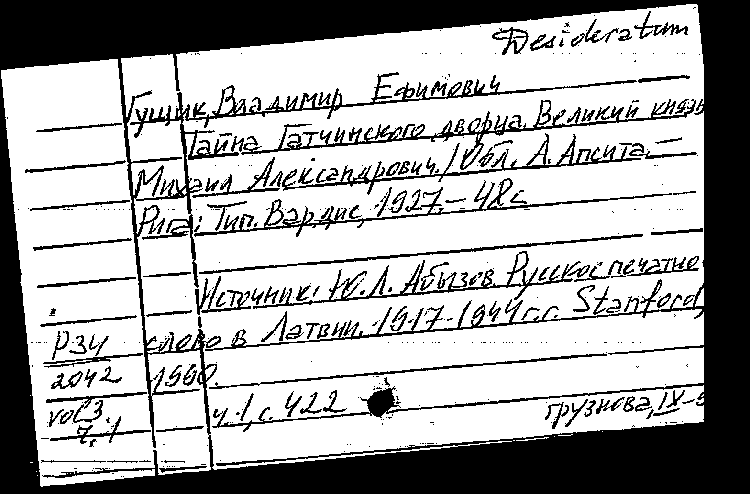 Desideratum
Гущик, Владимир Ефимович
Тайна Гатчинского дворца. Великий князь
Михаил Александрович. / Обл. А. Апсита. —
Рига: Тип. Вардис, 1927. — 48 с.
Источник: Ю. Л. Абызов. Русское печатно
P34 слово в Латвии. 1917-1944 г.г. Stanford,
2042 1990.
vol 3. ч. 1, с. 422
ч. 1 грузнова, IX-